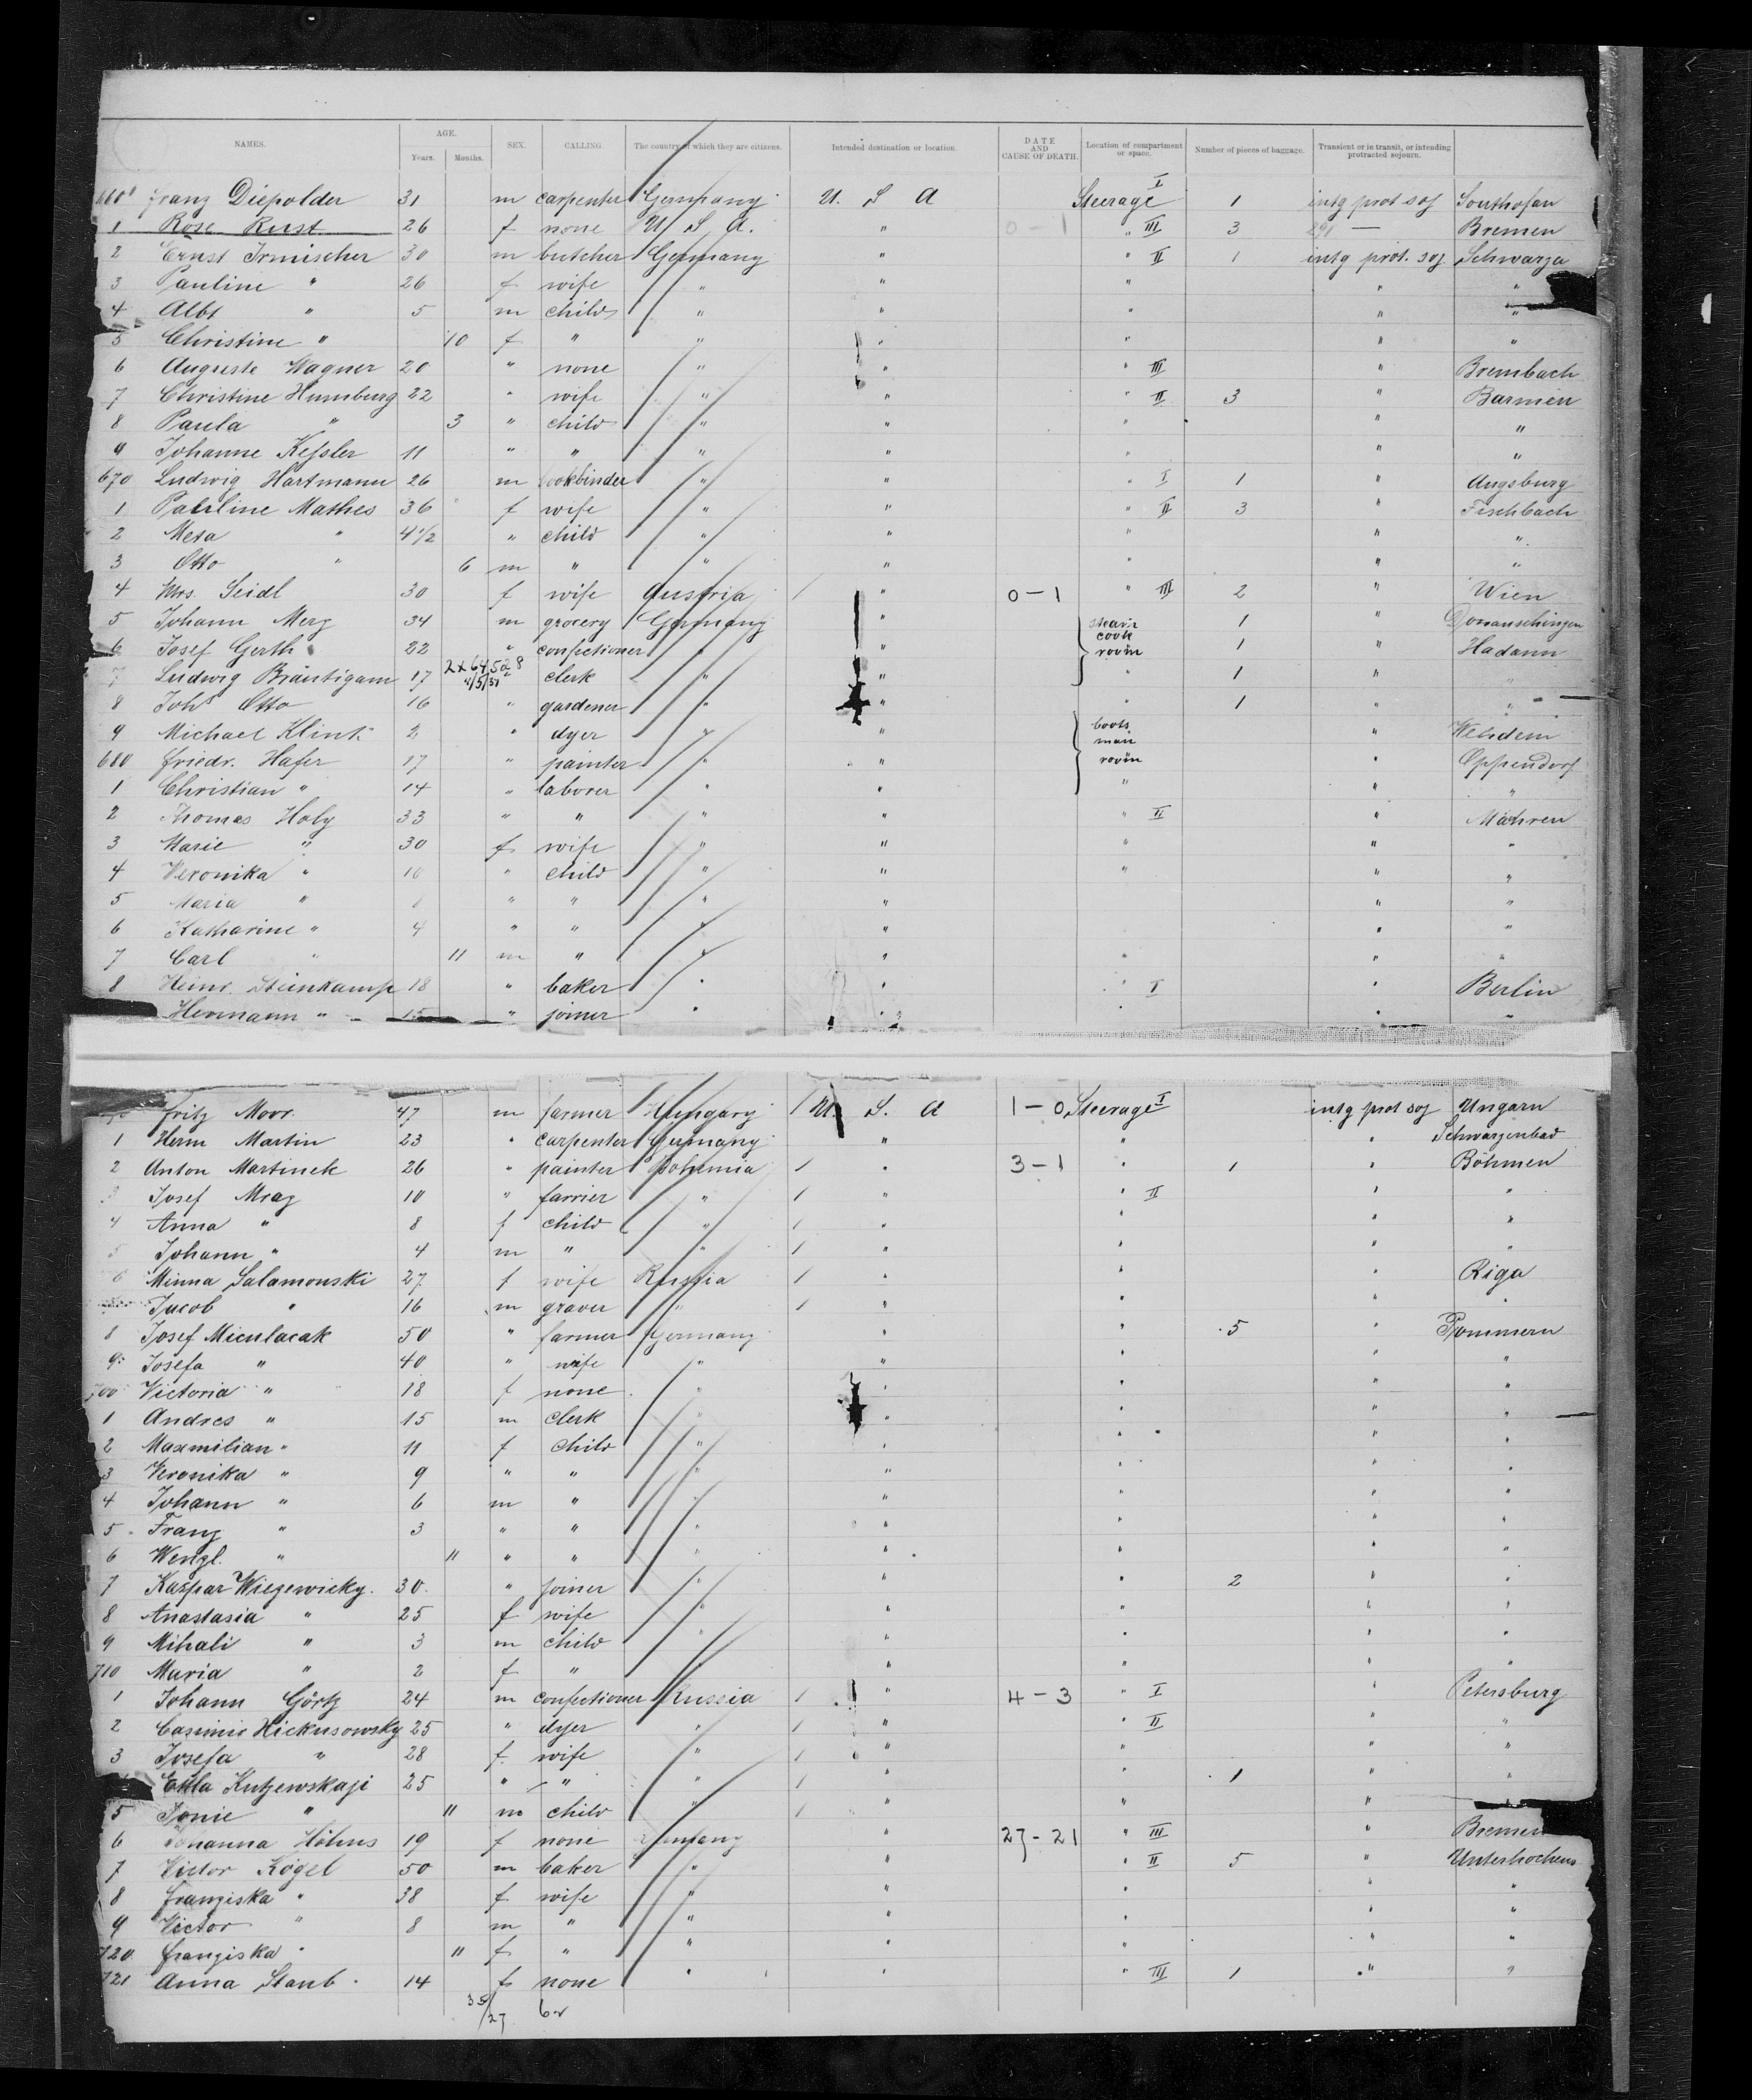 NAMES. AGE. Years. Months. SEX. CALLING. The country of which they are citizens. Intended destination or location. DATE AND CAUSE OF DEATH. Location of compartment or space. Number of pieces of baggage. Transient or in transit, or intending protracted sojourn.
Franz Diepolder 31 m carpenter Germany U. S. A Steerage I 1 intg prot soj Sonthofen
1 Rose Rust 26 f none U S A. " 0-1 " III 3 — Bremen
2 Ernst Irmischer 30 m butcher Germany " " II 1 intg prot. soj. Schwarza
3 Pauline " 26 f wife " " " " "
4 Albt " 5 m child " " " " "
5 Christine " 10 f " " " " " "
6 Auguste Wagner 20 " none " " " III " Brembach
7 Christine Humburg 22 " wife " " " II 3 " Barmen
8 Paula " 3 " child " " " " "
9 Johanne Kessler 11 " " " " " " "
670 Ludwig Hartmann 26 m bookbinder " " " I 1 " Augsburg
1 Pauline Mathes 36 f wife " " " II 3 " Fischbach
2 Meta " 4 1/2 " child " " " " "
3 Otto " 6 m " " " " " "
4 Mrs. Seidl 30 f wife Austria 1 " 0-1 " III 2 " Wien
5 Johann Merz 34 m grocery Germany " steam 1 " Donauschingen
6 Josef Gerth 22 " confectioner " " cook room 1 " Hadann
7 Ludwig Bräutigam 17 2x64528 4/5/37 clerk " " " 1 " "
8 Joh Otto 16 " gardener " " " 1 " "
9 Michael Klink 2 " dyer " " boots man " Wehdem
680 Friedr. Hafer 17 " painter " " room " Oppendorf
1 Christian " 14 " laborer " " " " "
2 Thomas Holy 33 " " " " " II " Mähren
3 Marie " 30 f wife " " " " "
4 Veronika " 10 " child " " " " "
5 Maria " " " " " " "
6 Katharine " 4 " " " " " "
7 Carl " 11 m " " " " " "
8 Heinr. Steinkamp 18 " baker " " " I " Berlin
Hermann " 15 " joiner " " " " "
Fritz Moor. 47 m farmer Hungary 1 U. S. A 1-0 Steerage I intg prot soj Ungarn
1 Herm Martin 23 " carpenter Germany " " " Schwarzenbad
2 Anton Martinek 26 " painter Bohemia 1 " 3-1 " 1 " Böhmen
3 Josef Mraz 10 " farrier " 1 " " II " "
4 Anna " 8 f child " 1 " " " "
5 Johann " 4 m " " 1 " " " "
6 Minna Salamonski 27 f wife Russia 1 " " " Riga
Jacob " 16 m graver " 1 " " " "
8 Josef Miculacak 50 " farmer Germany " " 5 " Pommern
9 Josefa " 40 " wife " " " " "
700 Victoria " 18 f none " " " " "
1 Andres " 15 m clerk " " " " "
2 Maxmilian " 11 f child " " " " "
3 Veronika " 9 " " " " " " "
4 Johann " 6 m " " " " " "
5 Franz " 3 " " " " " " "
6 Wenzl. " 11 " " " " " " "
7 Kaspar Wiezewicky. 30. " joiner " " " 2 " "
8 Anastasia " 25 f wife " " " " "
9 Mihali " 3 m child " " " " "
710 Maria " 2 f " " " " " "
1 Johann Görtz 24 m confectioner Russia 1 " 4-3 " I " Petersburg
2 Casimir Hickusowsky 25 " dyer " 1 " " II " "
3 Josefa " 28 f. wife " 1 " " " "
Kutzewskaji 25 " " " 1 " " 1 " "
5 " 11 m child " 1 " " " "
6 Johanna Höhns 19 f none Germany " 27-21 " III " Bremen
7 Victor Kögel 50 m baker " " " II 5 " Unterkochens
8 Franziska " 38 f wife " " " " "
9 Victor " 8 m " " " " " "
720 Franziska " 11 f " " " " " "
721 Anna Staub. 14 f none " " " III 1 " "
35/27 62